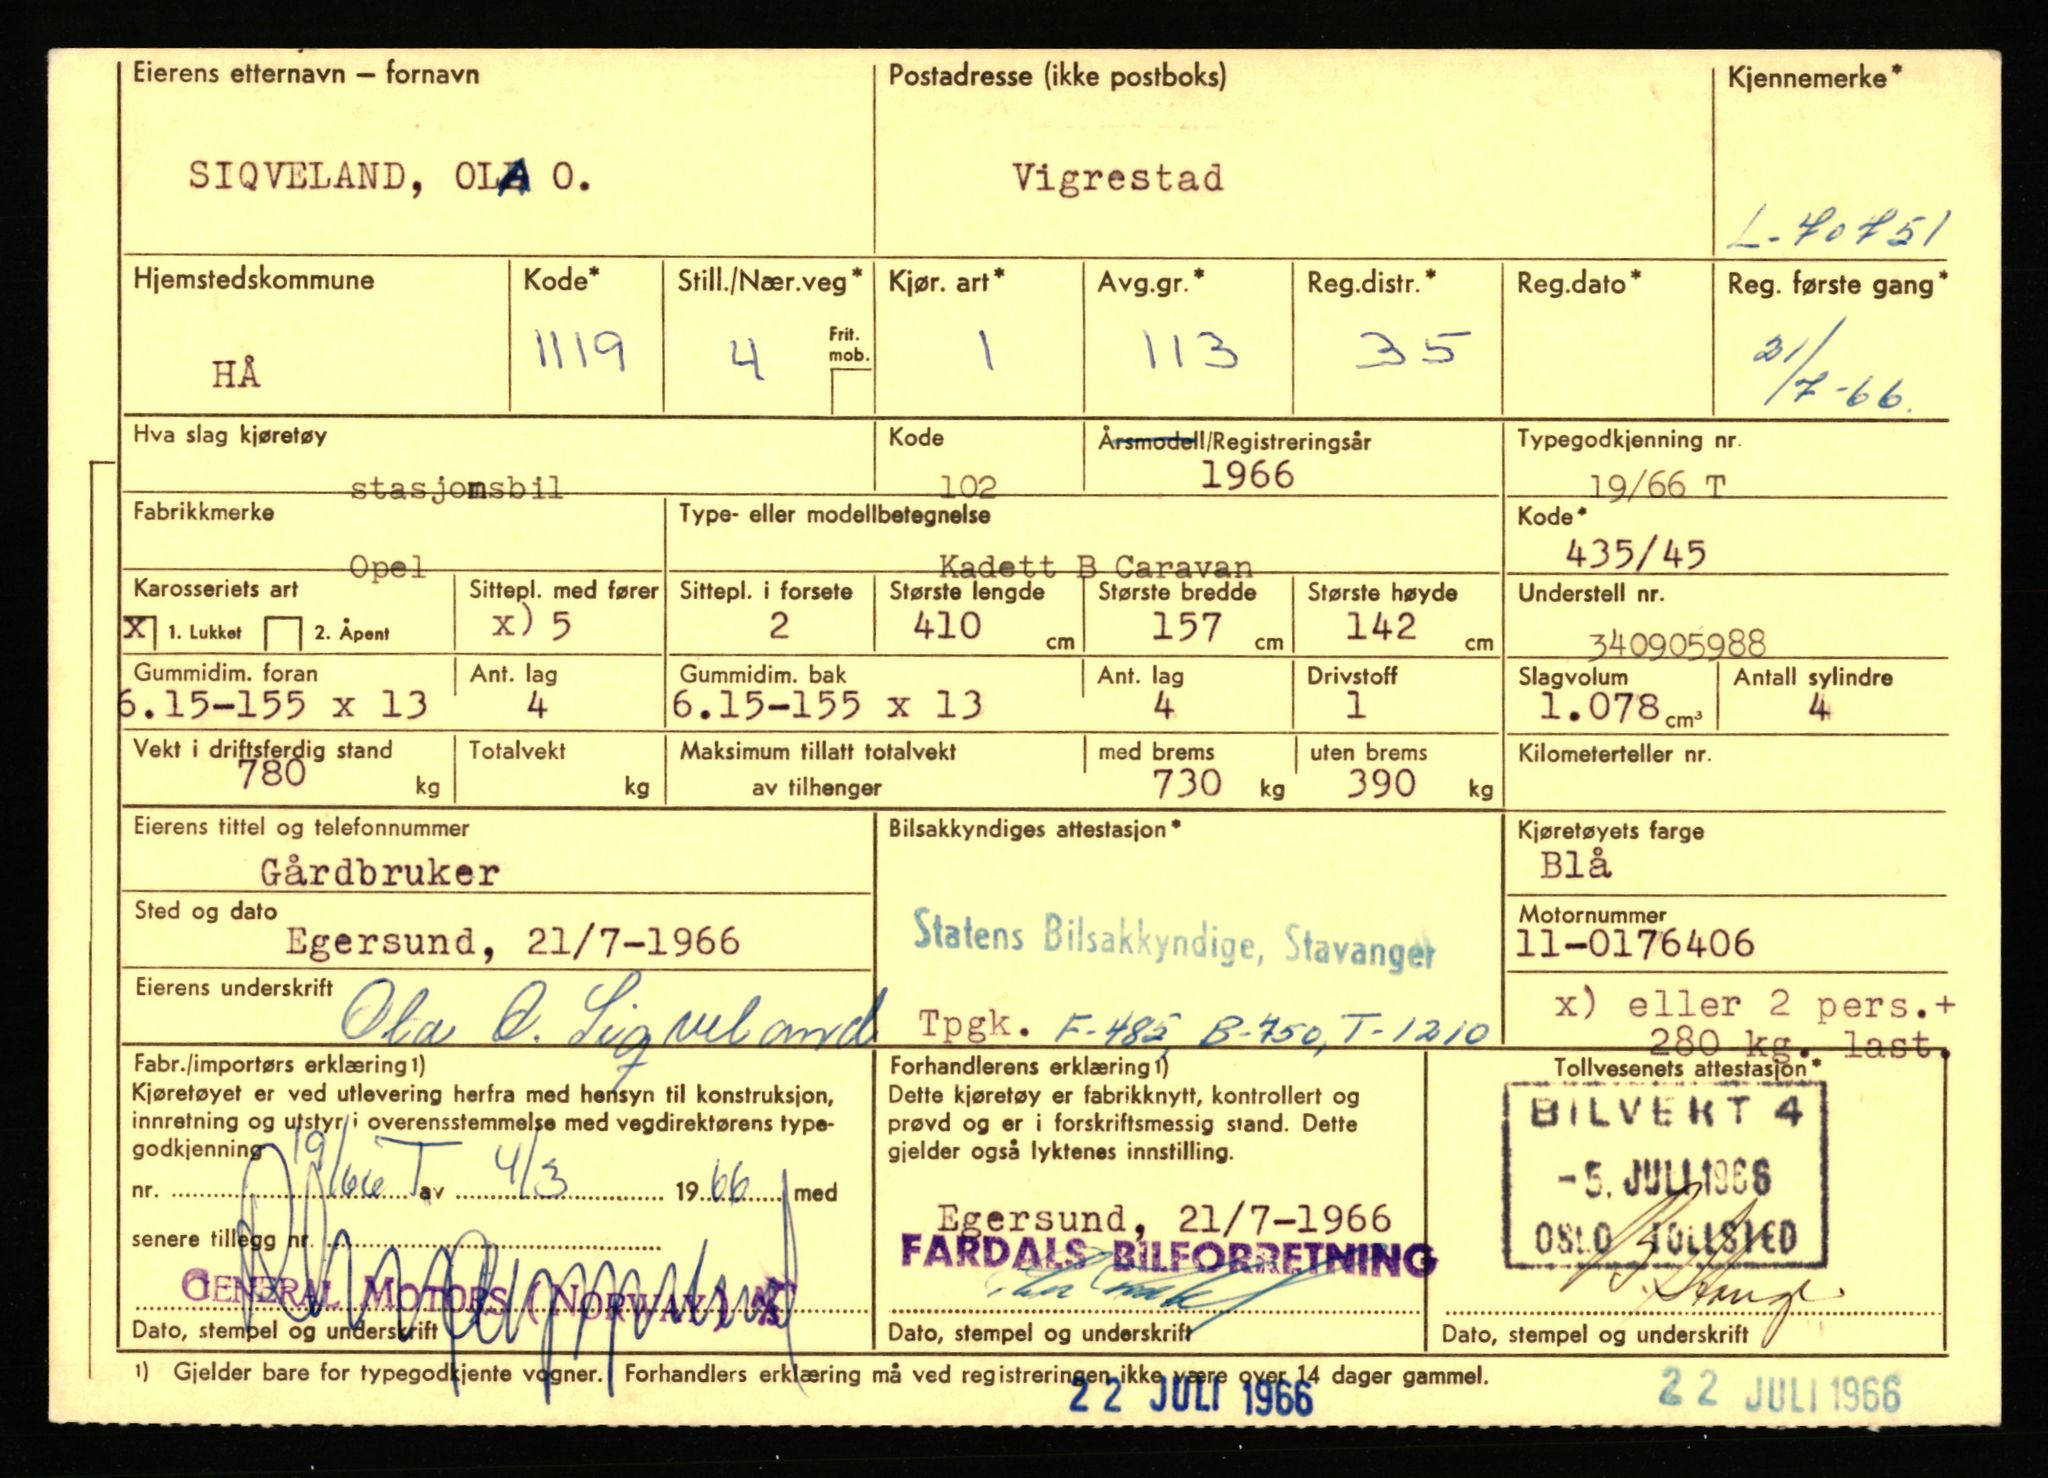 Eierens etternavn – fornavn
SIQVELAND, OLA O.
Postadresse (ikke postboks)
Vigrestad
Kjennemerke*
L-70751
Hjemstedskommune
HÅ
Kode*
1119
Still./Nær.veg*
4
Frit.
mob.
Kjør. art*
1
Avg.gr.*
113
Reg.distr.*
35
Reg.dato*
Reg. første gang*
21/7-66.
Hva slag kjøretøy
stasjonsbil
Kode
102
Årsmodell/Registreringsår
1966
Typegodkjenning nr.
19/66 T
Fabrikkmerke
Opel
Type- eller modellbetegnelse
Kadett B Caravan
Kode*
435/45
Karosseriets art
X 1. Lukket 2. Åpent
Sittepl. med fører
x) 5
Sittepl. i forsete
2
Største lengde
410 cm
Største bredde
157 cm
Største høyde
142 cm
Understell nr.
340905988
Gummidim. foran
6.15-155 x 13
Ant. lag
4
Gummidim. bak
6.15-155 x 13
Ant. lag
4
Drivstoff
1
Slagvolum
1.078 cm³
Antall sylindre
4
Vekt i driftsferdig stand
780 kg
Totalvekt
kg
Maksimum tillatt totalvekt
av tilhenger
med brems
730 kg
uten brems
390 kg
Kilometerteller nr.
Eierens tittel og telefonnummer
Gårdbruker
Bilsakkyndiges attestasjon*
Kjøretøyets farge
Blå
Sted og dato
Egersund, 21/7-1966
Statens Bilsakkyndige, Stavanger
Motornummer
11-0176406
Eierens underskrift
Ola O. Siqveland
Tpgk. F-485, B-750, T-1210
x) eller 2 pers.+
280 kg. last.
Fabr./importørs erklæring 1)
Kjøretøyet er ved utlevering herfra med hensyn til konstruksjon,
innretning og utstyr i overensstemmelse med vegdirektørens type-
godkjenning
nr. 19/66 T av 4/3 1966 med
senere tillegg nr.
GENERAL MOTORS (NORWAY) A/S
Dato, stempel og underskrift
Forhandlerens erklæring 1)
Dette kjøretøy er fabrikknytt, kontrollert og
prøvd og er i forskriftsmessig stand. Dette
gjelder også lyktenes innstilling.
Egersund, 21/7-1966
FARDALS BILFORRETNING
Dato, stempel og underskrift
Tollvesenets attestasjon*
BILVERT 4
-5. JULI 1966
OSLO TOLLSTED
Dato, stempel og underskrift
1) Gjelder bare for typegodkjente vogner. Forhandlers erklæring må ved registreringen ikke være over 14 dager gammel.
22 JULI 1966
22 JULI 1966